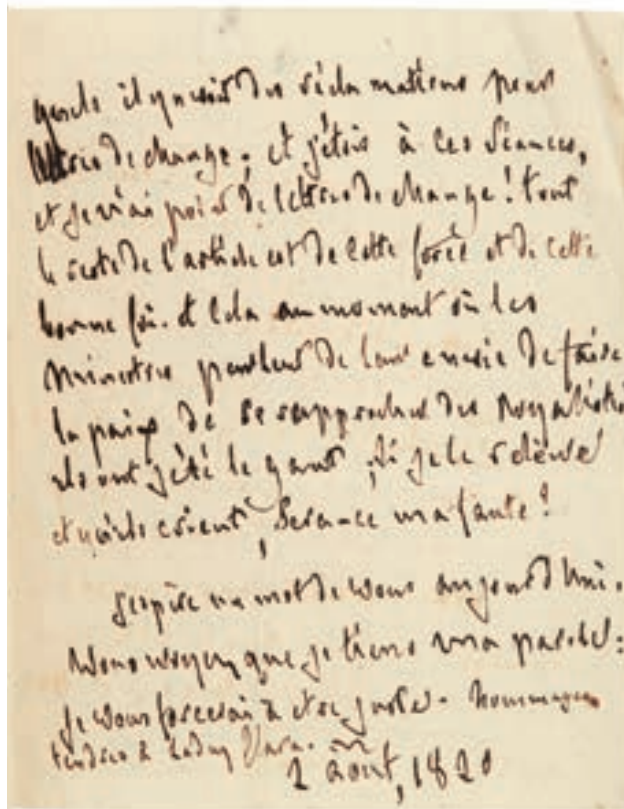 quels il y avoit des réclamations pour
lettres de change; et j'étois à ces séances,
et je n'ai point de lettres de change! tout
le reste de l'article est de cette force et de cette
bonne foi. et cela au moment où les
ministres parlent de leur envie de faire
la paix de se rapprocher des Royalistes
ils ont jété le gant; si je le relève
et qu'ils crient, sera-ce ma faute?
J'espère un mot de vous aujourd'hui.
Vous voyez que je tiens ma parole:
je vous forcerai à etre juste. hommages
tendres à
2 aout, 1820